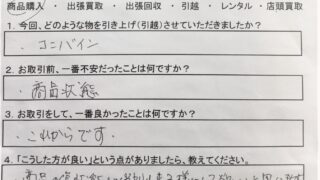 商品購入 ・ 出張買取 ・ 出張回収 ・ 引越 ・ レンタル ・ 店頭買取
1. 今回、どのような物を引き上げ(引越)させていただきましたか?
・コンバイン
2. お取引前、一番不安だったことは何ですか?
・商品状態
3. お取引をして、一番良かったことは何ですか?
・これからです・
4. 「こうした方が良い」という点がありましたら、教えてください。